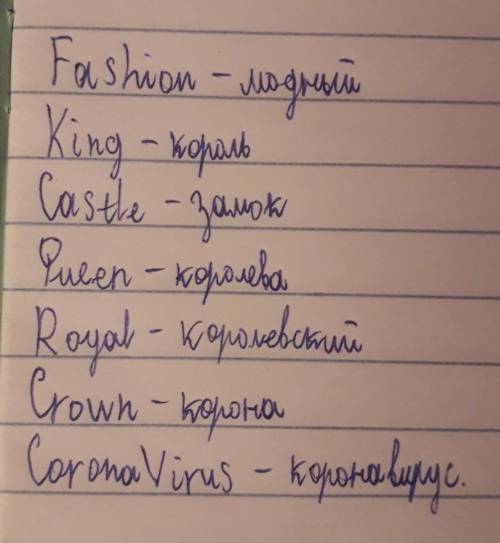 Fashion – модный
King – король
Castle – замок
Queen – королева
Royal – королевский
Crown – корона
CoronaVirus – коронавирус.